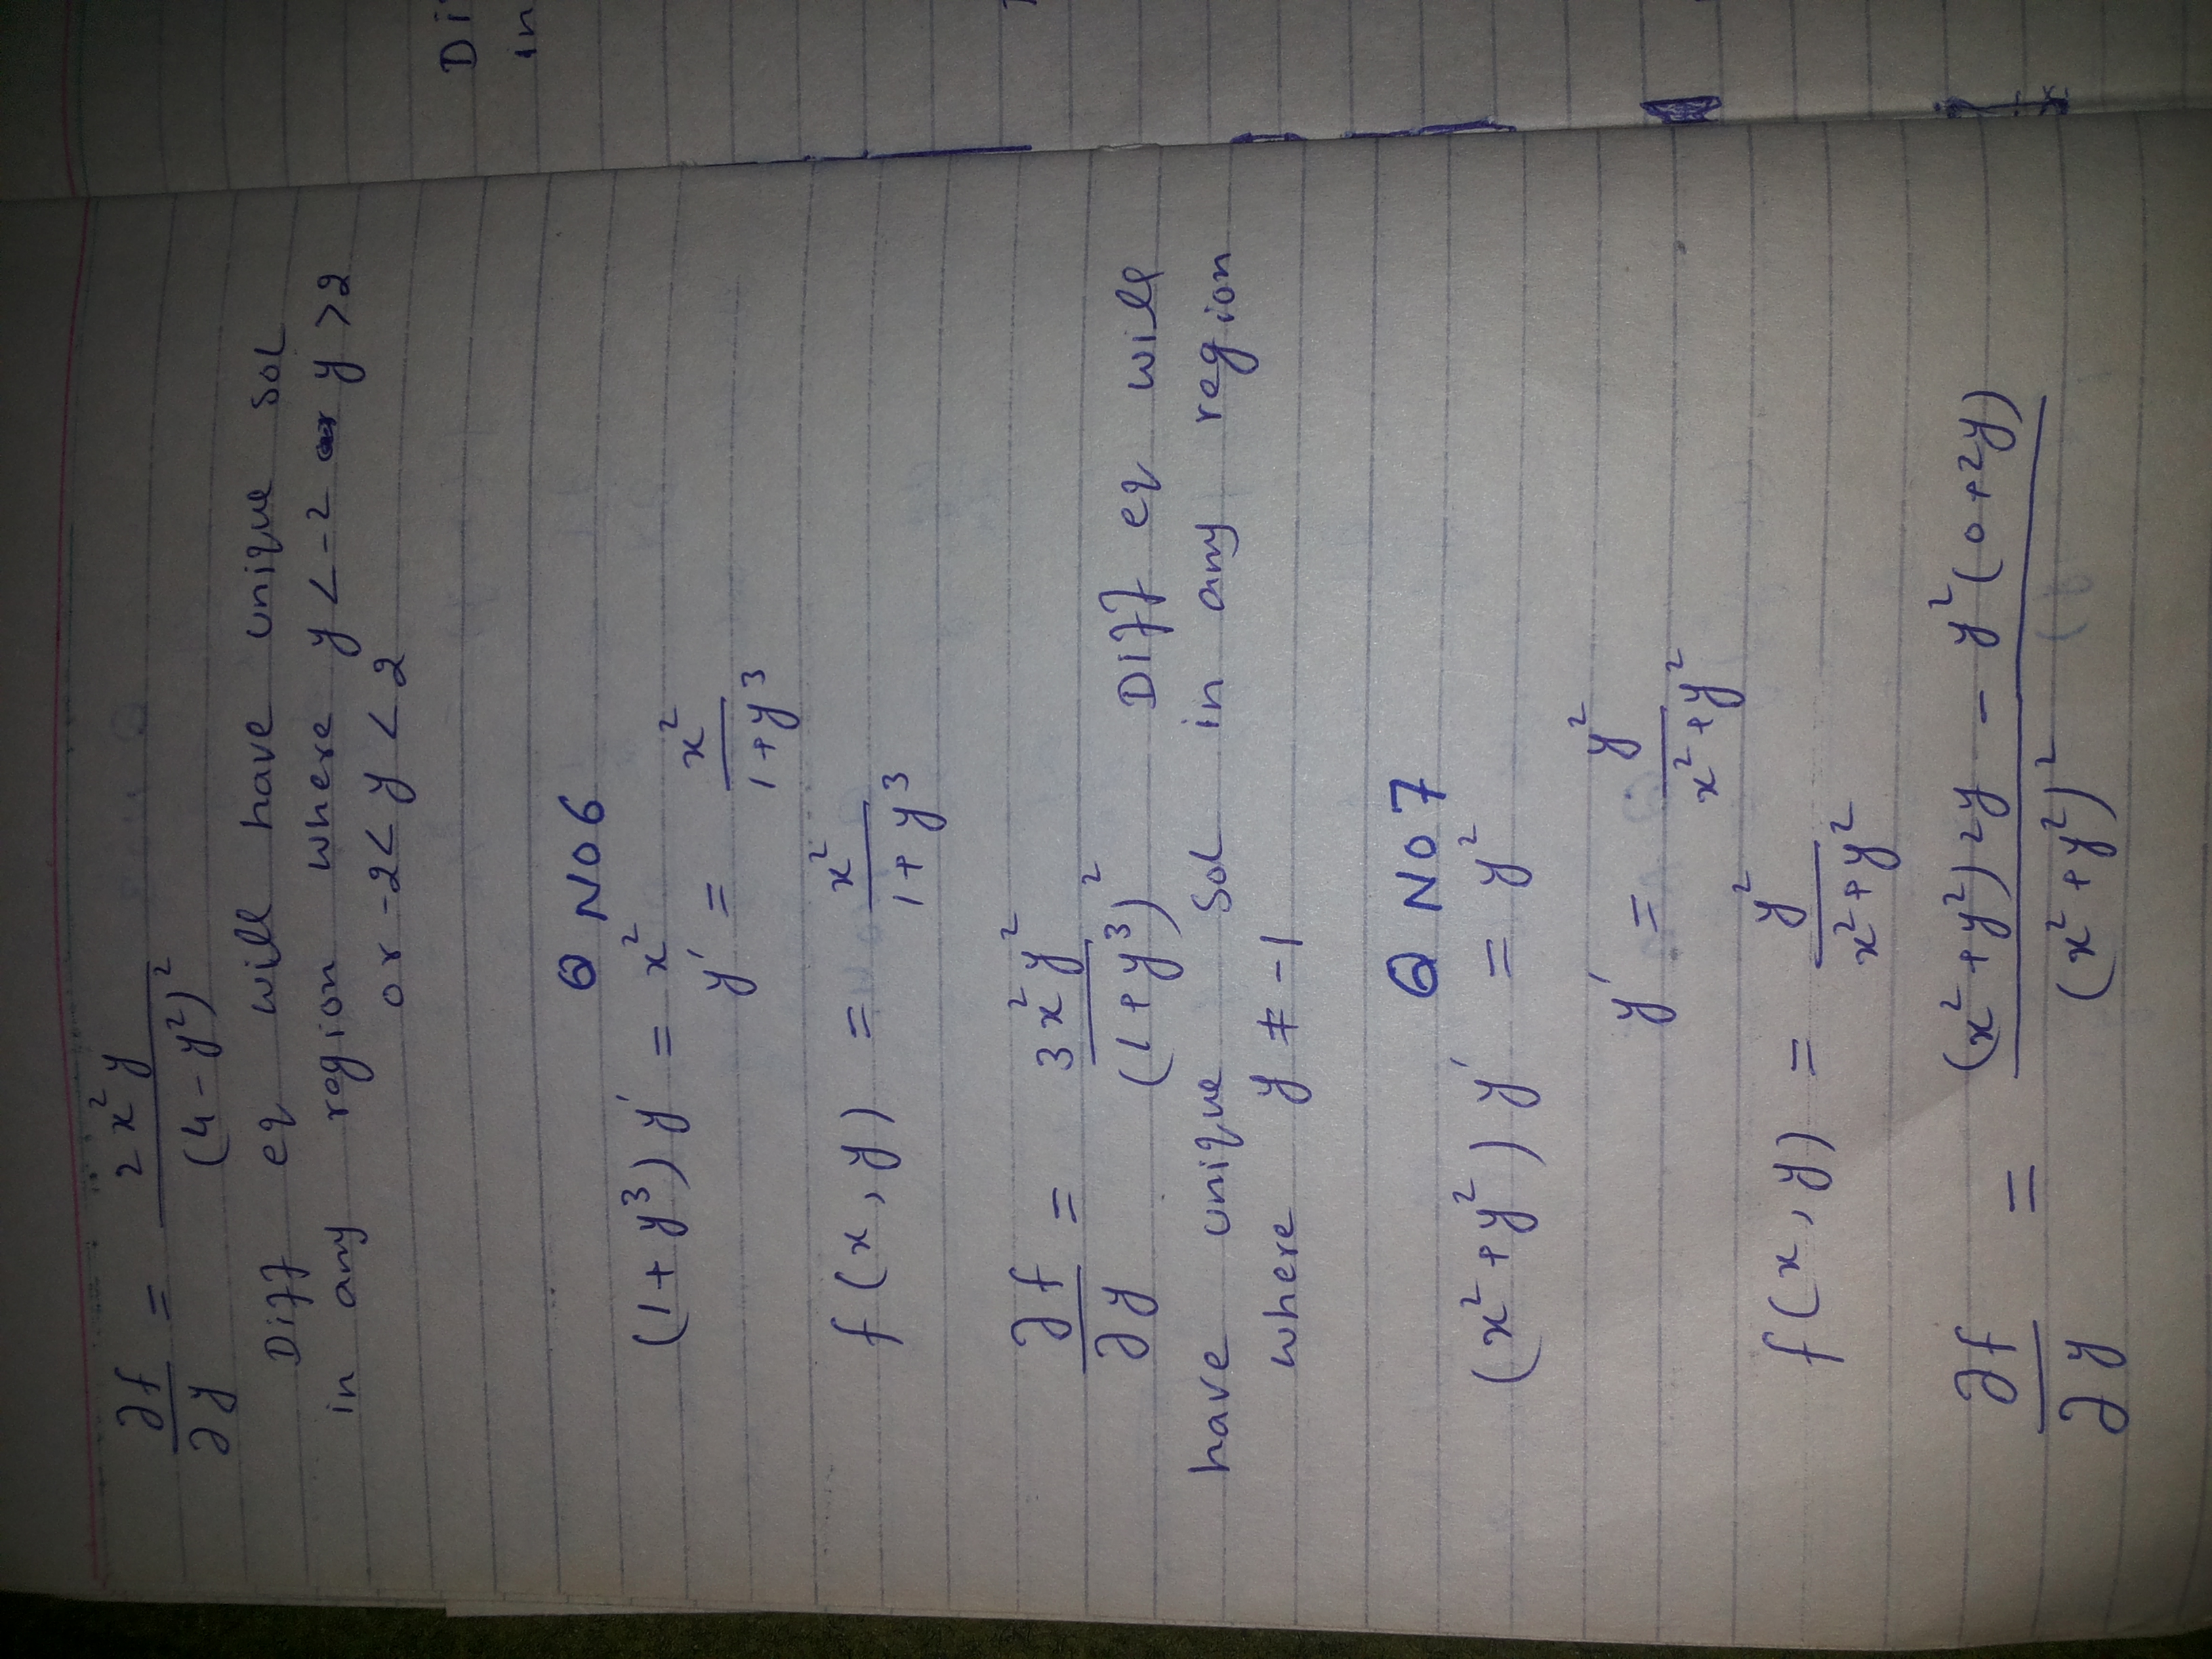 ∂f/∂y = 2x²y/(4-y²)²
Diff eq will have unique sol
in any rogion where y < -2 or y > 2
or -2 < y < 2
Q No 6
(1+y³)y' = x²
y' = x²/(1+y³)
f(x,y) = x²/(1+y³)
∂f/∂y = 3x²y²/(1+y³)² Diff eq will
have unique sol in any region
where y ≠ -1
Q No 7
(x²+y²)y' = y²
y' = y²/(x²+y²)
f(x,y) = y²/(x²+y²)
∂f/∂y = ((x²+y²)2y - y²(0+2y))/(x²+y²)²
Di
in